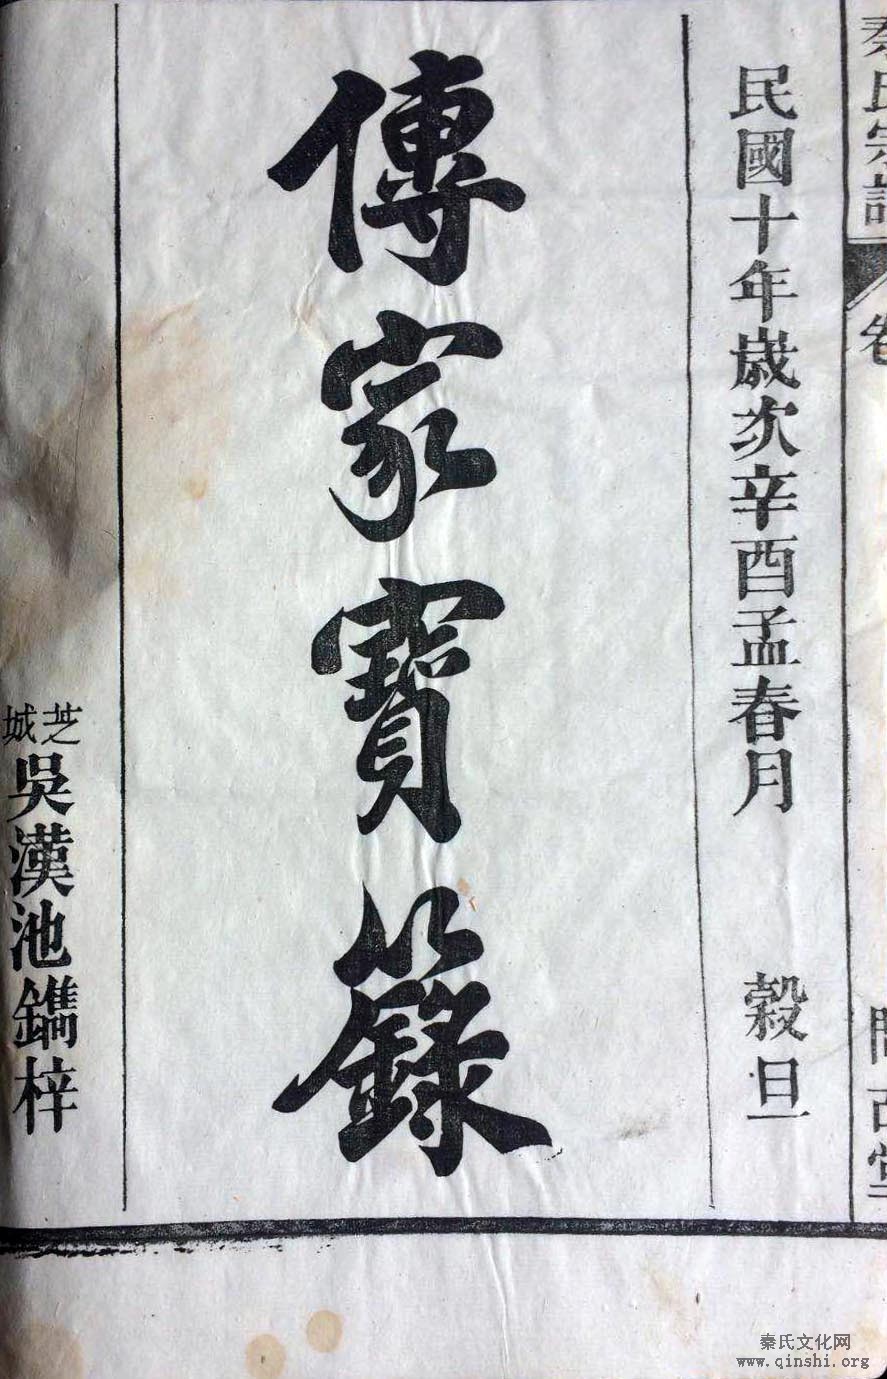 秦氏宗譜
卷
民國十年歲次辛酉孟春月 穀旦
傳家寶籙
芝城吳漢池鐫梓
秦氏文化网
www.qinshi.org